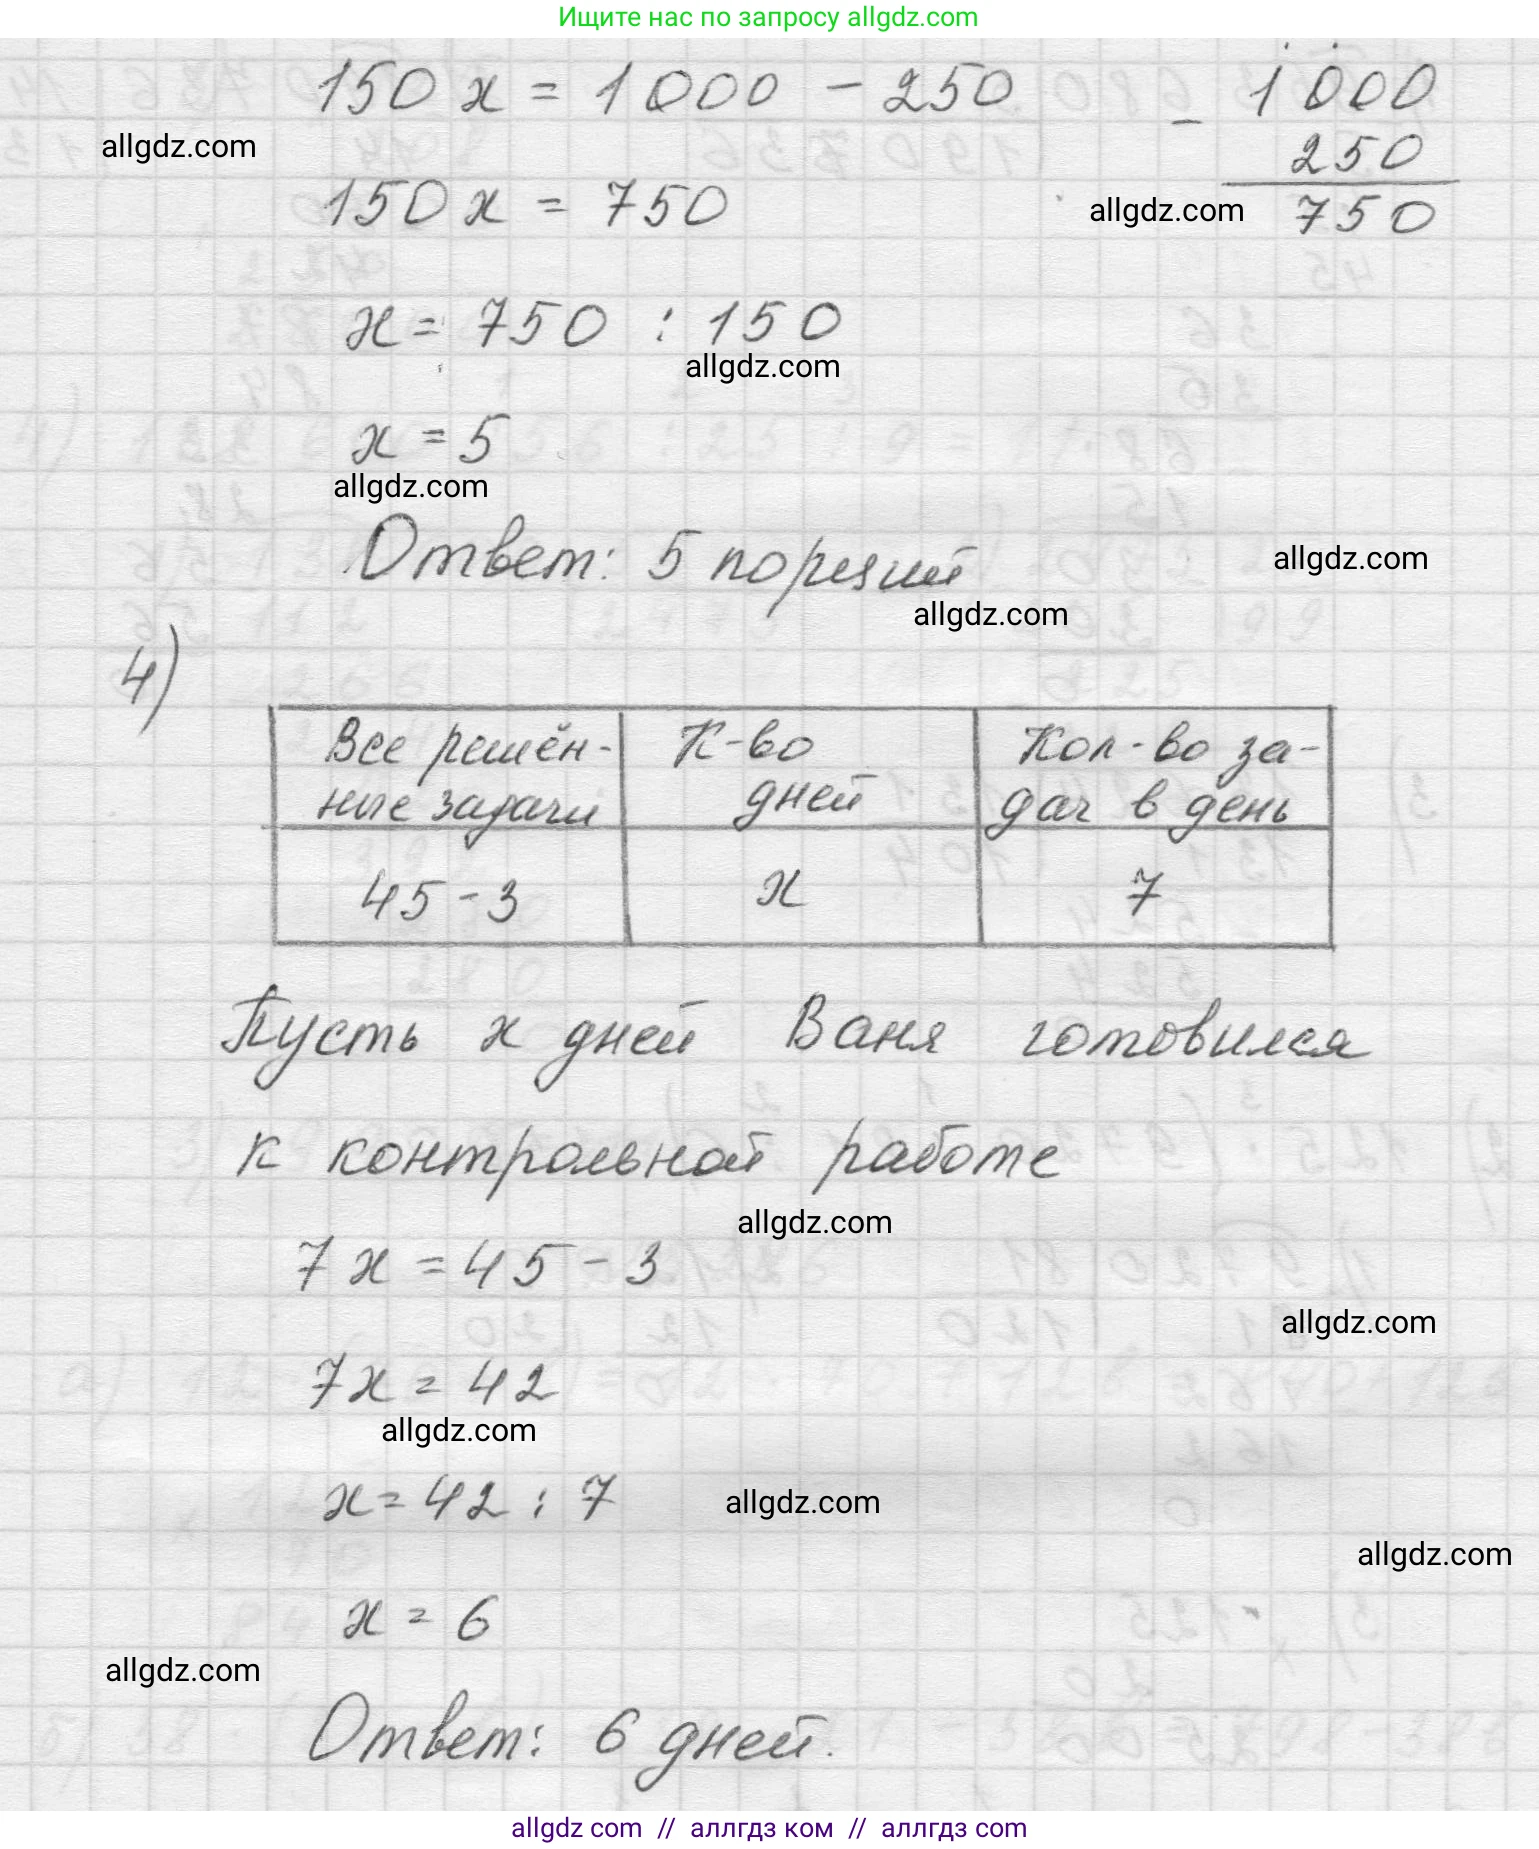 Ищите нас по запросу allgdz.com
150 x = 1000 - 250
- 1000
250
750
allgdz.com
150 x = 750
allgdz.com
x = 750 : 150
allgdz.com
x = 5
allgdz.com
Ответ: 5 порций
allgdz.com
allgdz.com
4)
Все решён-
ные задачи
К-во
дней
Кол-во за-
дач в день
45 - 3
x
7
Пусть x дней Ваня готовился
к контрольной работе
allgdz.com
7x = 45 - 3
allgdz.com
7x = 42
allgdz.com
x = 42 : 7
allgdz.com
allgdz.com
x = 6
allgdz.com
Ответ: 6 дней.
allgdz com // аллгдз ком // аллгдз com